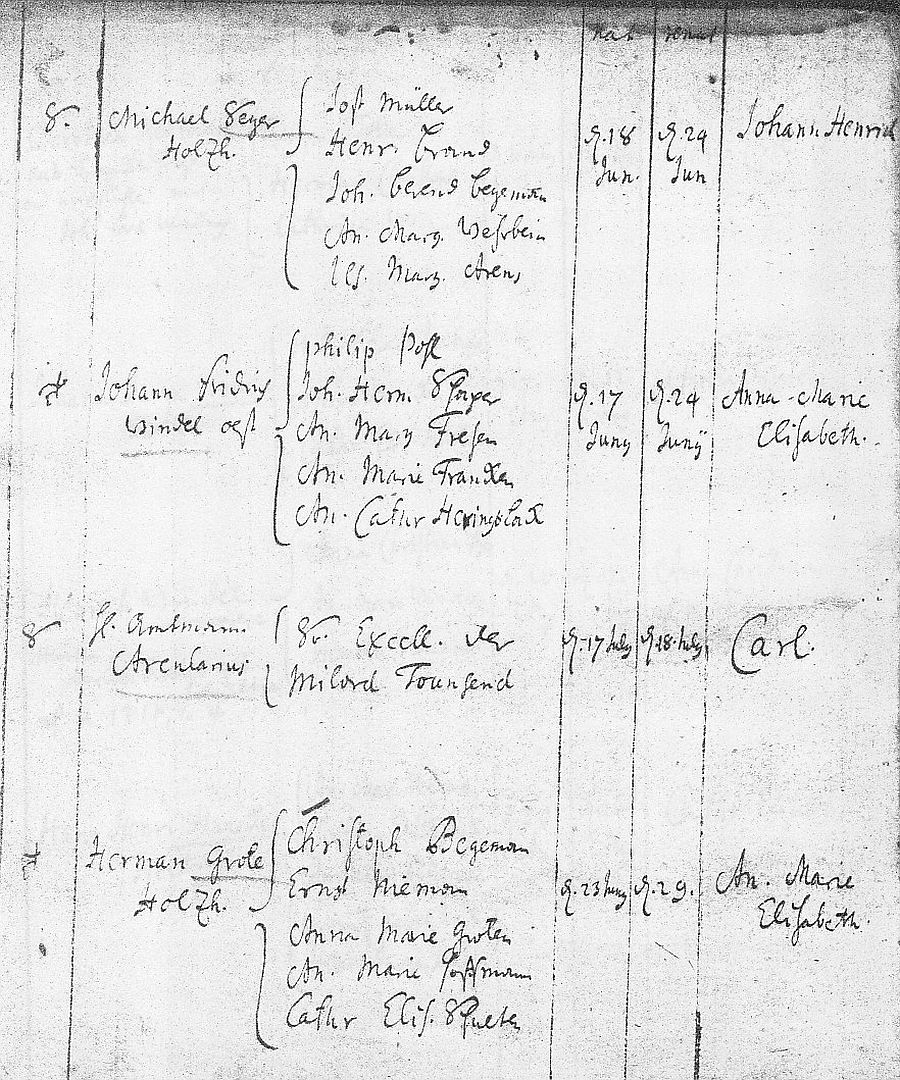 nat renat
8.
Michael Seger
Holzh.
Jost Müller
Henr. Brand
Joh. Berend Begeman
An. Marg. Wehrbein
Ils. Marg. Arens
d. 18
Jun.
d. 24
Jun
Johann Henrich
Johann Fridrig
Windel
philip Post
Joh. Herm.
An. Marg Fresen
An. Marie Francken
An. Cathr
d. 17
Juny
d. 24
Junij
Anna-Marie
Elisabeth.
8
H. Ambtmann
Arcularius
Sr. Excell. der
Milord Townsend
d. 17 July
d. 18. July
Carl.
Herman Grote
Holzh.
Christoph Begeman
Ernst Nieman
Anna Marie Groten
An. Marie Hoffmann
Cathr Elis.
d. 23 Juny
d. 29.
An. Marie
Elisabeth.